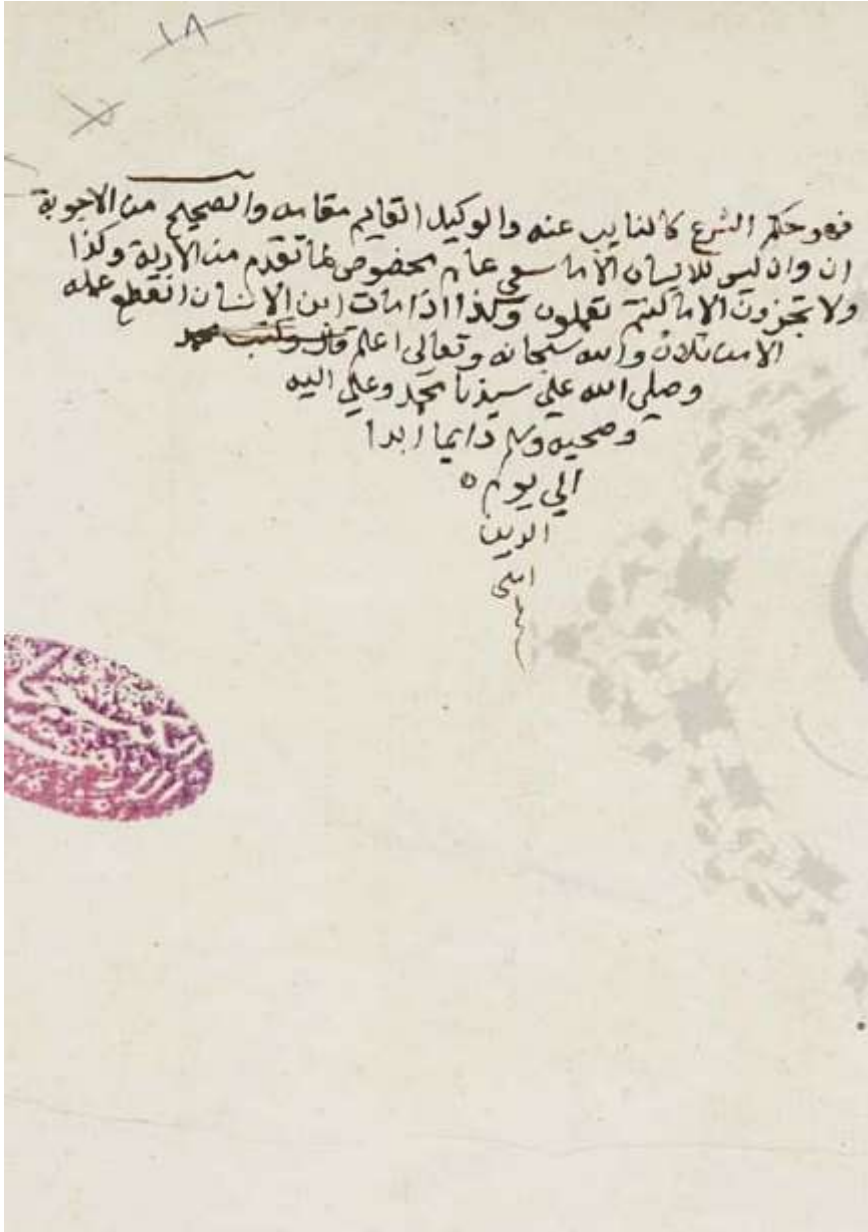 ١٨
فهو حكم الشرع كالنايب عنه والوكيل القايم مقامه والصحيح من الاجوبة
ان وان ليس للانسان الا ما سعى عام مخصوص بما تقدم من الادلة وكذا
ولا تجزون الا ما كنتم تعملون وكذا اذا مات ابن الانسان انقطع عمله
الا من ثلاث والله سبحانه وتعالى اعلم قال وكتب محمد
وصلي الله علي سيدنا محمد وعلي اليه
وصحبه وسلم دايما ابدا
الي يوم
الدين
امين